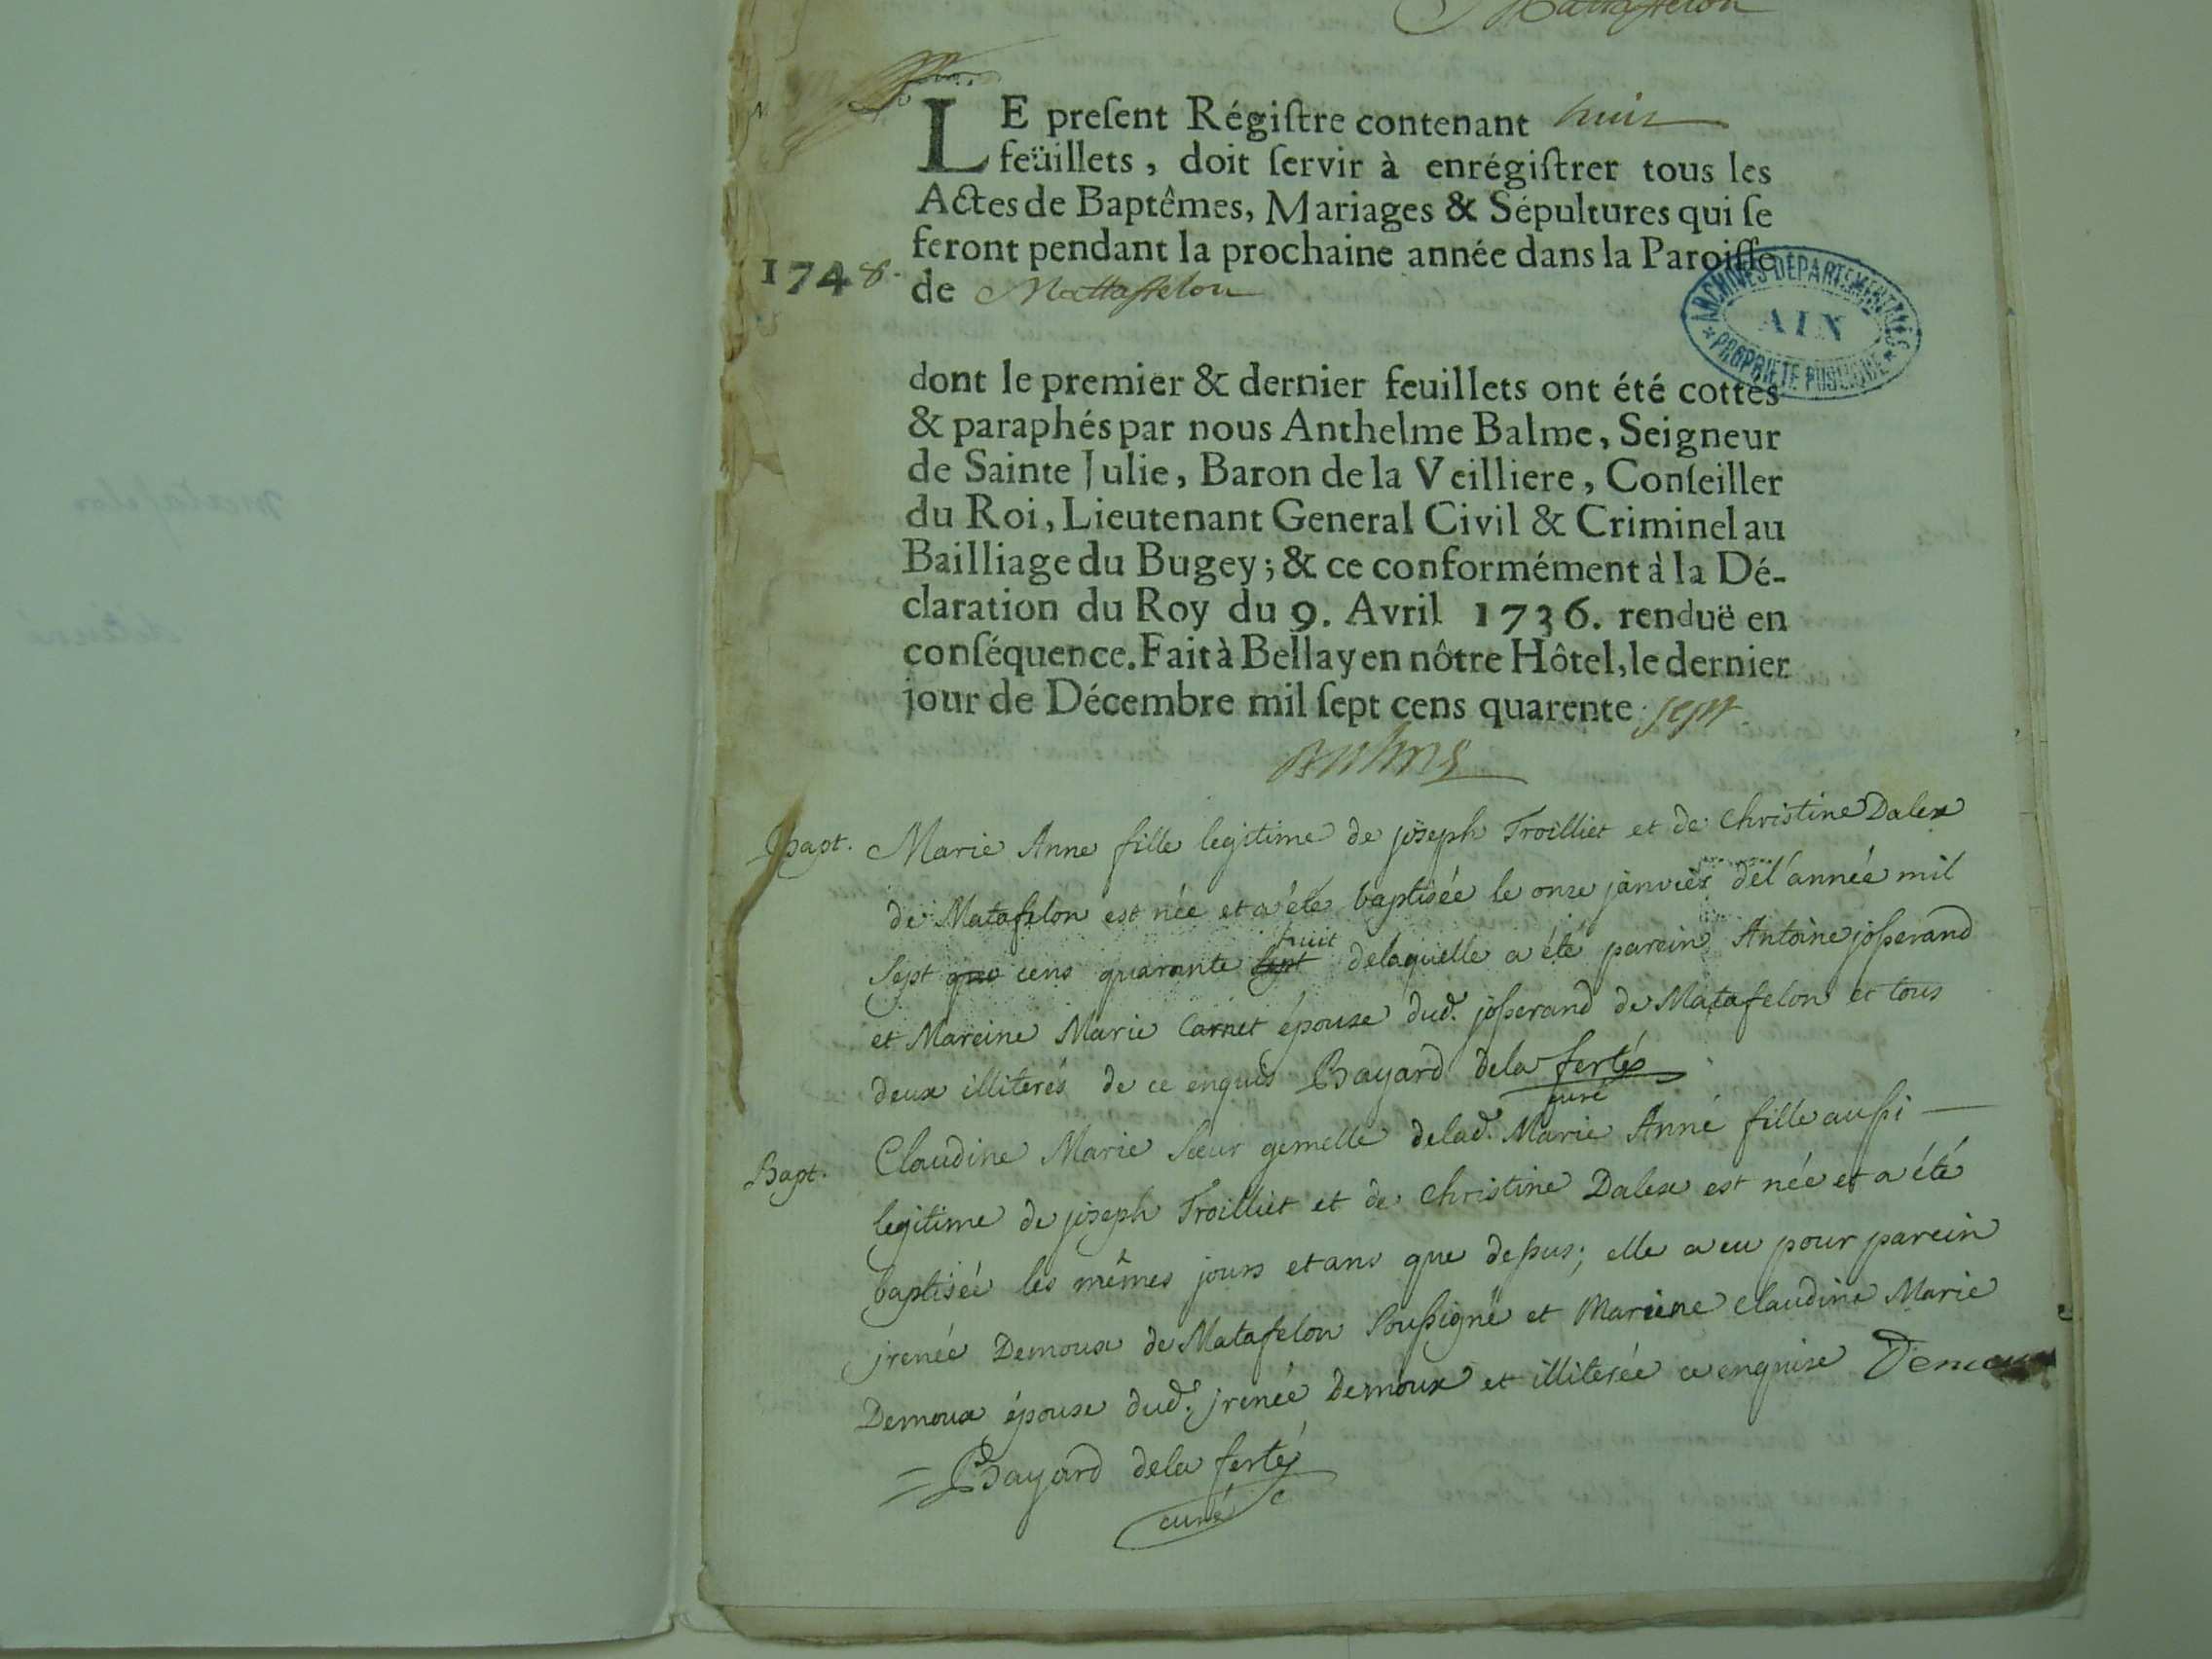 Mattaffelon
LE preſent Régiſtre contenant huit
feüillets, doit ſervir à enrégiſtrer tous les
Actes de Baptêmes, Mariages & Sépultures qui ſe
feront pendant la prochaine année dans la Paroiſſe
1748.
de Mattaffelon
ARCHIVES DÉPARTEMENTALES
AIN
PROPRIÉTÉ PUBLIQUE
dont le premier & dernier feuillets ont été cottés
& paraphés par nous Anthelme Balme, Seigneur
de Sainte Julie, Baron de la Veilliere, Conſeiller
du Roi, Lieutenant General Civil & Criminel au
Bailliage du Bugey; & ce conformément à la Dé-
claration du Roy du 9. Avril 1736. renduë en
conſéquence. Fait à Bellay en nôtre Hôtel, le dernier
jour de Décembre mil ſept cens quarente sept
Balme
Bapt. Marie Anne fille legitime de joseph Troilliet et de Christine Dalex
de Matafelon est née et a été baptisée le onze janvier del'année mil
sept que cens quarante sept huit delaquelle a été parein Antoine josserand
et Mareine Marie Carnet épouse dud. josserand de Matafelon et tous
deux illiterés de ce enquis Bayard dela ferté
curé
Bapt. Claudine Marie sœur gemelle delad. Marie Anne fille aussi
legitime de joseph Troilliet et de Christine Dalex est née et a été
baptisée les mêmes jours et ans que dessus; elle a eu pour parein
jrenée Demoux de Matafelon soussigné et Mareine Claudine Marie
Demoux épouse dud. jrenée Demoux et illiterée ce enquise Demoux
= Bayard dela ferté
curé